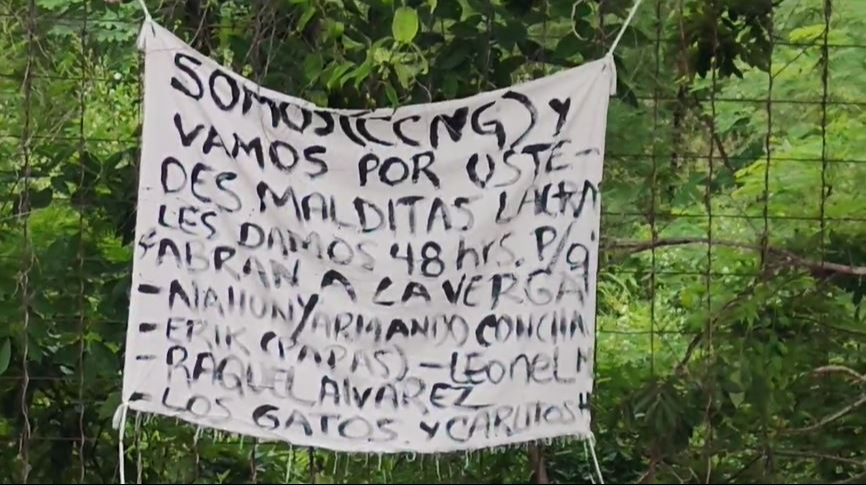 SOMOS (CCNG) Y
VAMOS POR USTE-
DES MALDITAS LACRA
LES DAMOS 48 hrs. P/q'
ABRAN A LA VERGA
- NAHUN Y ARMANDO CONCHA
- ERIK (PAPAS) - LEONEL
- RAQUEL ALVAREZ
- LOS GATOS Y CARLITOS